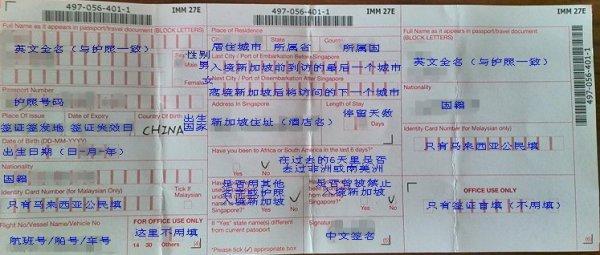 497-056-401-1
IMM 27E
Full Name as it appears in passport/travel document
(BLOCK LETTERS)
英文全名（与护照一致）
性别
男
女
Passport Number
护照号码
Place Of Issue
Date of Expiry
Country Of Birth
签证签发地
签证失效日
CHINA
出生国家
Date of Birth (DD-MM-YYYY)
出生日期（日-月-年）
Nationality
国籍
Identity Card Number (for Malaysian Only)
Tick If
Malaysian
只有马来西亚公民填
Flight No/Vessel Name/Vehicle No
FOR OFFICE USE ONLY
航班号/船号/车号
这里不用填
14 30 Others
497-056-401-1
IMM 27E
Place of Residence
居住城市
所属省
所属国
Last City / Port of Embarkation Before Singapore
入境新加坡前到访的最后一个城市
Next City / Port of Disembarkation After Singapore
离境新加坡后将访问的下一个城市
Address In Singapore
Length of Stay
停留天数
新加坡住址（酒店名）
Days
Have you been to Africa or South America in the last 6 days?
在过去的6天里是否去过非洲或南美洲
Yes
No
是否用其他名字或护照入境新加坡
是否曾被禁止入境新加坡
Singapore?
Yes
No
If "Yes" state name(s) different from current passport
Signature
中文签名
*Please tick (✓) appropriate box
IMM 27E
497-056-401-1
Full Name as it appears in passport/travel document
(BLOCK LETTERS)
英文全名（与护照一致）
Nationality
国籍
Identity Card Number (for Malaysian Only)
只有马来西亚公民填
OFFICE USE ONLY
只有签证官填（不用填）